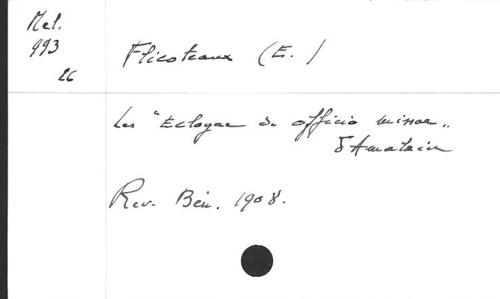 Mel.
993
26
Flicoteaux (E.)
Les "Eclogae de officio missae„
d'Amalaire
Rev. Bén. 1908.